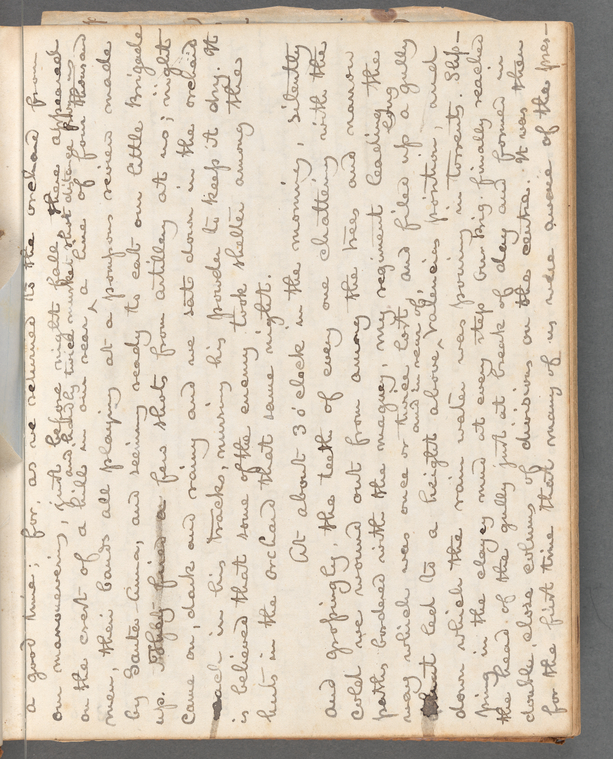 a good time; for, as we returned to the orchard from
our manoeuvering, just before night fall, there appeared
and hardly twice musket shot distance from us
on the crest of a hill in our rear, a line of four thousand
men, their bands all playing at a pompous review made
by Santa-Anna, and seeming ready to eat our little Brigade
up. They fired a few shots from artillery at us; night
came on, dark and rainy and we sat down in the orchard
each in his tracks, nursing his powder to keep it dry. It
is believed that some of the enemy took shelter among the
huts in the orchard that same night.
At about 3 o'clock in the morning, silently
and gropingly, the teeth of every one chattering with the
cold we wound out from among the trees and narrow
paths bordered with the maguey, my regiment leading the
way which was once or twice lost and filed up a gully
and in rear of,
that led to a height above, Valencia's position, and
down which the rain water was pouring in torrents. Slip-
ping in the clayey mud at every step our Brig. finally reached
the head of the gully just at break of day and formed in
double, close column of divisions on the centre. It was then
for the first time that many of us were aware of the pres-